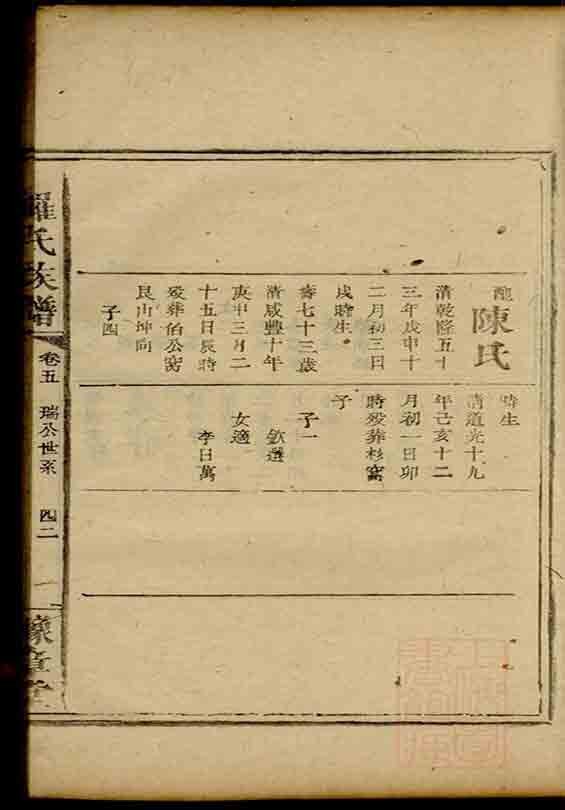 配
陳氏
清乾隆五十
三年戊申十
二月初三日
戌時生。
壽七十三歲
清咸豐十年
庚申三月二
十五日辰時
歿葬伯公窩
艮山坤向
子四
時生
清道光十九
年己亥十二
月初一日卯
時歿葬杉窩
子
子一
欽選
女適
李日萬
羅氏族譜
卷五 瑞公世系 四二
豫章堂